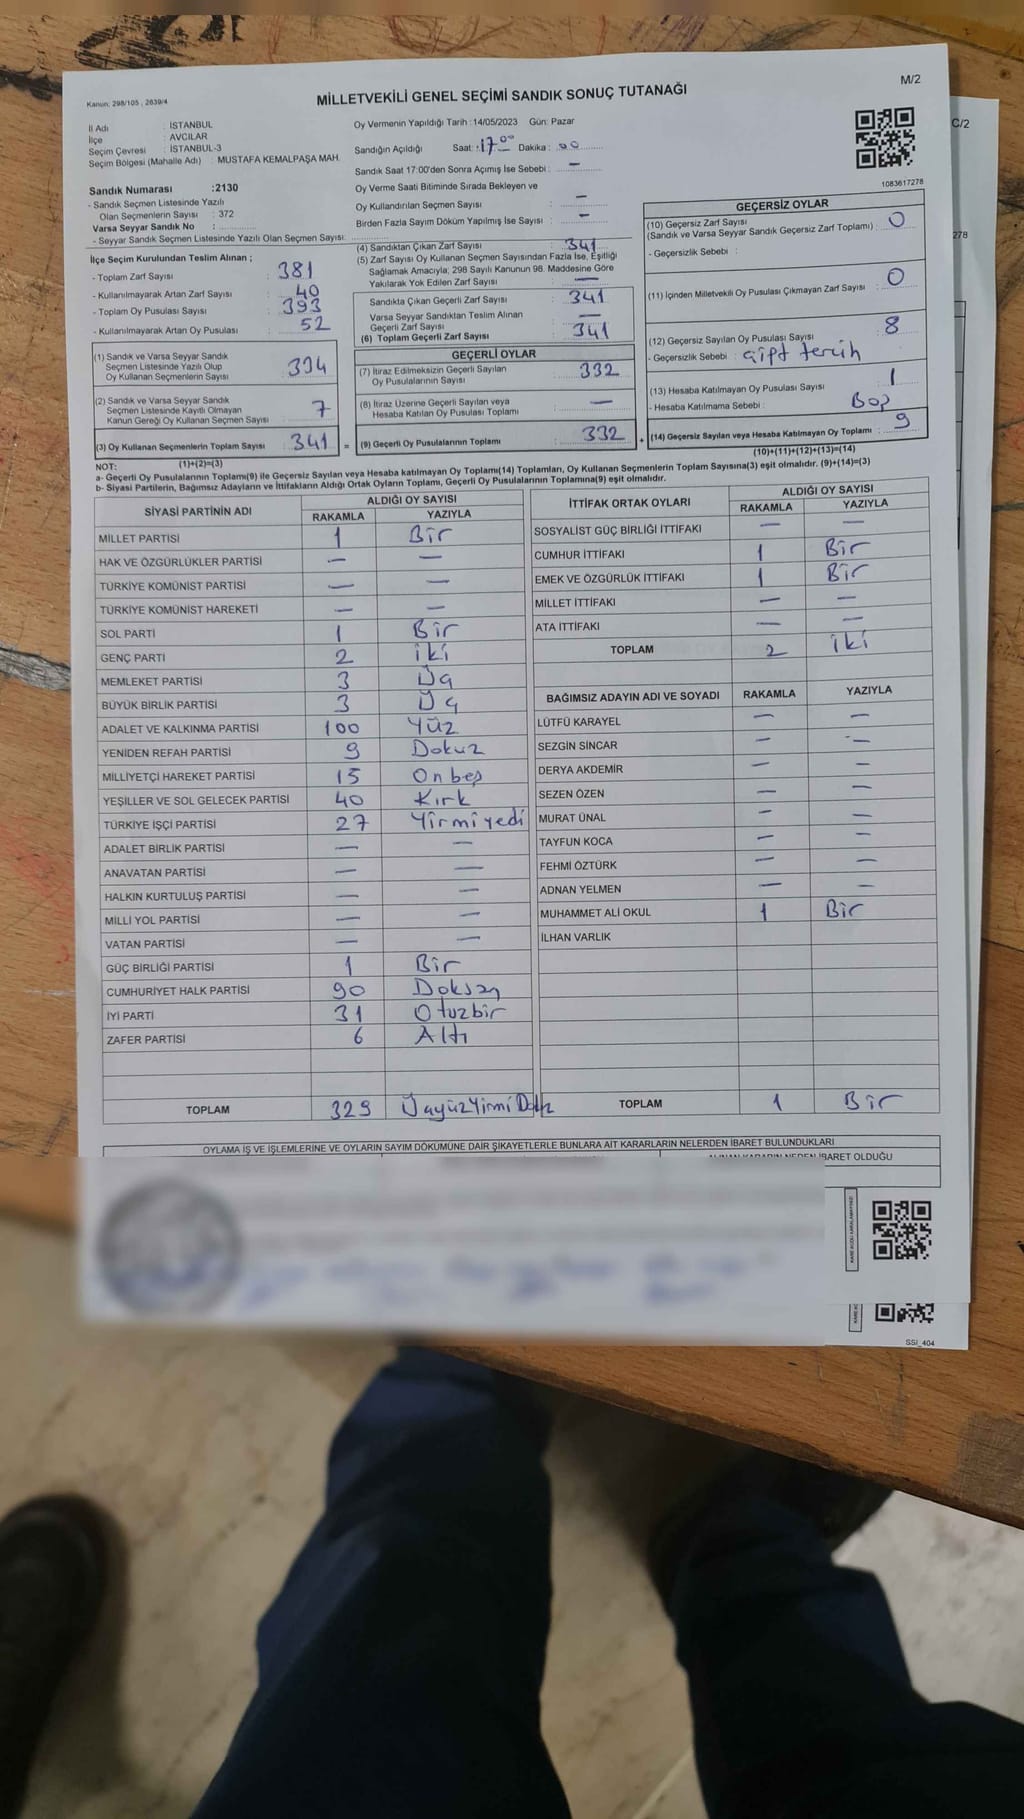 M/2
Kanun: 298/105 , 2839/4
MİLLETVEKİLİ GENEL SEÇİMİ SANDIK SONUÇ TUTANAĞI
C/2
İl Adı : İSTANBUL
İlçe : AVCILAR
Seçim Çevresi : İSTANBUL-3
Seçim Bölgesi (Mahalle Adı) : MUSTAFA KEMALPAŞA MAH.
Sandık Numarası :2130
- Sandık Seçmen Listesinde Yazılı
Olan Seçmenlerin Sayısı : 372
Varsa Seyyar Sandık No :
- Seyyar Sandık Seçmen Listesinde Yazılı Olan Seçmen Sayısı:
Oy Vermenin Yapıldığı Tarih :14/05/2023 Gün: Pazar
Sandığın Açıldığı Saat: 17⁰⁰ Dakika : 00
Sandık Saat 17:00'den Sonra Açımış İse Sebebi : —
Oy Verme Saati Bitiminde Sırada Bekleyen ve
Oy Kullandırılan Seçmen Sayısı : —
Birden Fazla Sayım Döküm Yapılmış İse Sayısı : —
1083617278
278
İlçe Seçim Kurulundan Teslim Alınan ;
- Toplam Zarf Sayısı : 381
- Kullanılmayarak Artan Zarf Sayısı : 40
- Toplam Oy Pusulası Sayısı : 393
- Kullanılmayarak Artan Oy Pusulası : 52
(1) Sandık ve Varsa Seyyar Sandık
Seçmen Listesinde Yazılı Olup
Oy Kullanan Seçmenlerin Sayısı : 334
(2) Sandık ve Varsa Seyyar Sandık
Seçmen Listesinde Kayıtlı Olmayan
Kanun Gereği Oy Kullanan Seçmen Sayısı : 7
(3) Oy Kullanan Seçmenlerin Toplam Sayısı : 341 =
(1)+(2)=(3)
(4) Sandıktan Çıkan Zarf Sayısı : 341
(5) Zarf Sayısı Oy Kullanan Seçmen Sayısından Fazla İse, Eşitliği
Sağlamak Amacıyla; 298 Sayılı Kanunun 98. Maddesine Göre
Yakılarak Yok Edilen Zarf Sayısı : —
Sandıkta Çıkan Geçerli Zarf Sayısı : 341
Varsa Seyyar Sandıktan Teslim Alınan
Geçerli Zarf Sayısı : —
(6) Toplam Geçerli Zarf Sayısı : 341
GEÇERLİ OYLAR
(7) İtiraz Edilmeksizin Geçerli Sayılan
Oy Pusulalarının Sayısı : 332
(8) İtiraz Üzerine Geçerli Sayılan veya
Hesaba Katılan Oy Pusulası Toplamı : —
(9) Geçerli Oy Pusulalarının Toplamı : 332 +
GEÇERSİZ OYLAR
(10) Geçersiz Zarf Sayısı
(Sandık ve Varsa Seyyar Sandık Geçersiz Zarf Toplamı) : 0
- Geçersizlik Sebebi :
(11) İçinden Milletvekili Oy Pusulası Çıkmayan Zarf Sayısı : 0
(12) Geçersiz Sayılan Oy Pusulası Sayısı : 8
- Geçersizlik Sebebi : Çift tercih
(13) Hesaba Katılmayan Oy Pusulası Sayısı : 1
- Hesaba Katılmama Sebebi : Boş
(14) Geçersiz Sayılan veya Hesaba Katılmayan Oy Toplamı : 9
(10)+(11)+(12)+(13)=(14)
NOT:
a- Geçerli Oy Pusulalarının Toplamı(9) ile Geçersiz Sayılan veya Hesaba katılmayan Oy Toplamı(14) Toplamları, Oy Kullanan Seçmenlerin Toplam Sayısına(3) eşit olmalıdır. (9)+(14)=(3)
b- Siyasi Partilerin, Bağımsız Adayların ve İttifakların Aldığı Ortak Oyların Toplamı, Geçerli Oy Pusulalarının Toplamına(9) eşit olmalıdır.
SİYASİ PARTİNİN ADI
ALDIĞI OY SAYISI
RAKAMLA YAZIYLA
MİLLET PARTİSİ 1 Bir
HAK VE ÖZGÜRLÜKLER PARTİSİ — —
TÜRKİYE KOMÜNİST PARTİSİ — —
TÜRKİYE KOMÜNİST HAREKETİ — —
SOL PARTİ 1 Bir
GENÇ PARTİ 2 iki
MEMLEKET PARTİSİ 3 Üç
BÜYÜK BİRLİK PARTİSİ 3 Üç
ADALET VE KALKINMA PARTİSİ 100 Yüz
YENİDEN REFAH PARTİSİ 9 Dokuz
MİLLİYETÇİ HAREKET PARTİSİ 15 Onbeş
YEŞİLLER VE SOL GELECEK PARTİSİ 40 Kırk
TÜRKİYE İŞÇİ PARTİSİ 27 Yirmiyedi
ADALET BİRLİK PARTİSİ — —
ANAVATAN PARTİSİ — —
HALKIN KURTULUŞ PARTİSİ — —
MİLLİ YOL PARTİSİ — —
VATAN PARTİSİ — —
GÜÇ BİRLİĞİ PARTİSİ 1 Bir
CUMHURİYET HALK PARTİSİ 90 Doksan
İYİ PARTİ 31 Otuzbir
ZAFER PARTİSİ 6 Altı
TOPLAM 329
İTTİFAK ORTAK OYLARI
ALDIĞI OY SAYISI
RAKAMLA YAZIYLA
SOSYALİST GÜÇ BİRLİĞİ İTTİFAKI — —
CUMHUR İTTİFAKI 1 Bir
EMEK VE ÖZGÜRLÜK İTTİFAKI 1 Bir
MİLLET İTTİFAKI — —
ATA İTTİFAKI — —
TOPLAM 2 iki
BAĞIMSIZ ADAYIN ADI VE SOYADI RAKAMLA YAZIYLA
LÜTFÜ KARAYEL — —
SEZGİN SİNCAR — —
DERYA AKDEMİR — —
SEZEN ÖZEN — —
MURAT ÜNAL — —
TAYFUN KOCA — —
FEHMİ ÖZTÜRK — —
ADNAN YELMEN — —
MUHAMMET ALİ OKUL 1 Bir
İLHAN VARLIK
TOPLAM 1 Bir
OYLAMA İŞ VE İŞLEMLERİNE VE OYLARIN SAYIM DÖKÜMÜNE DAİR ŞİKAYETLERLE BUNLARA AİT KARARLARIN NELERDEN İBARET BULUNDUKLARI
İBARET OLDUĞU
SSİ_404